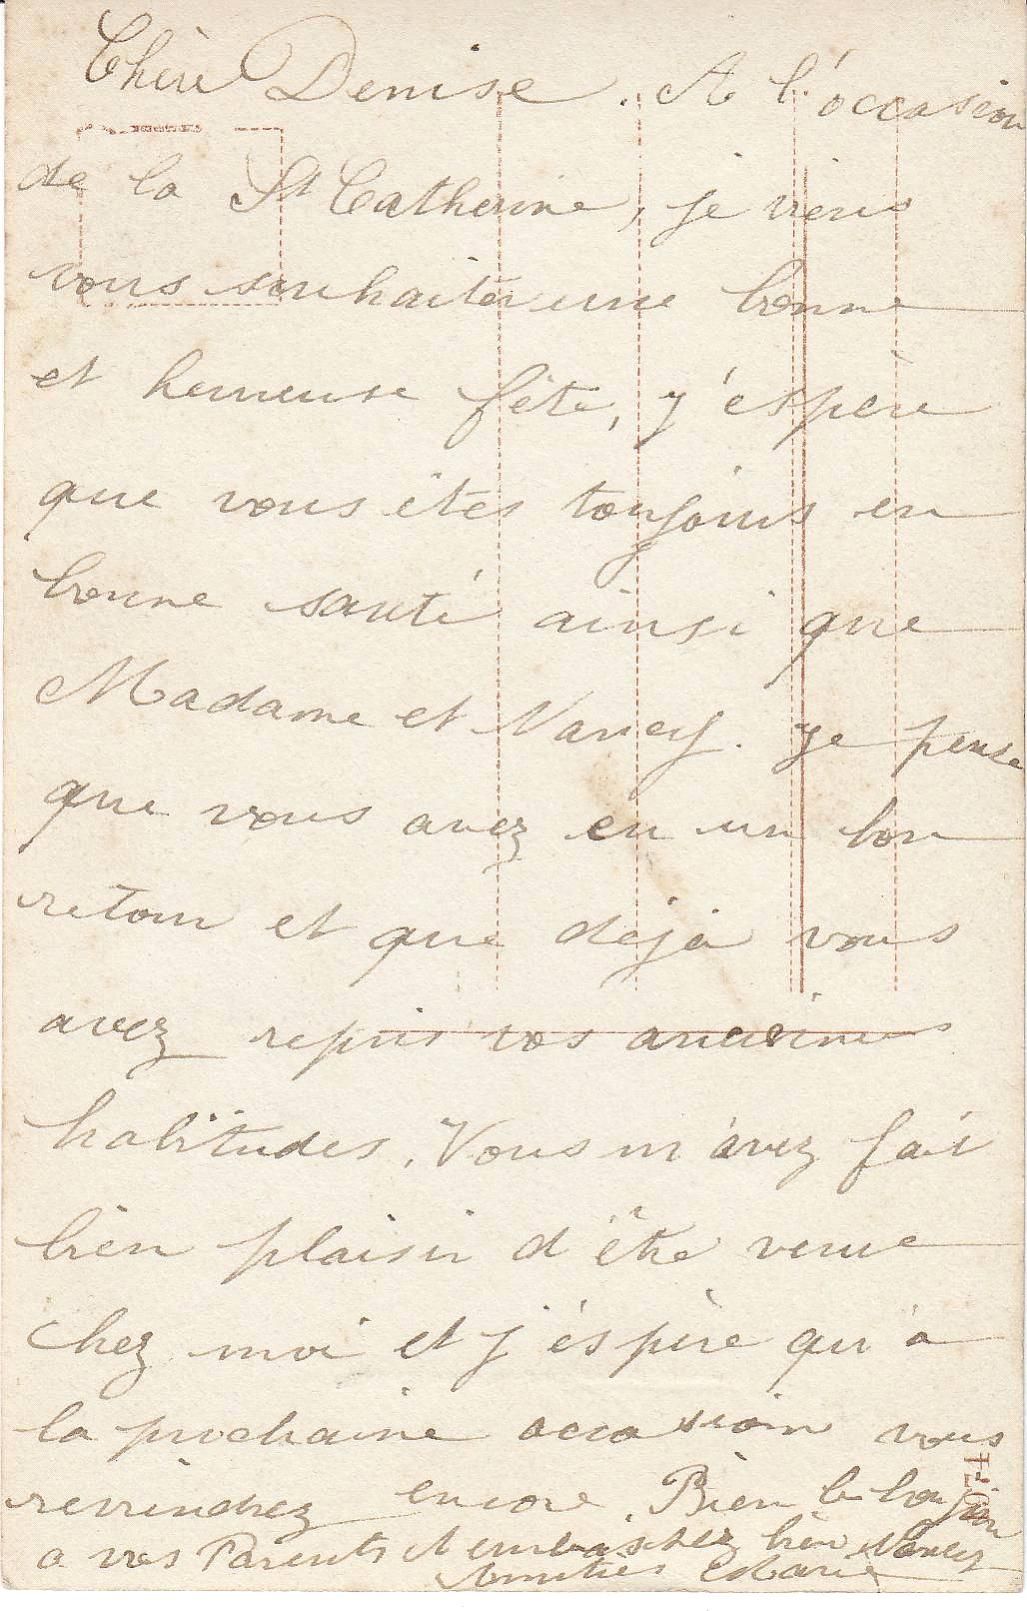 Chère Denise. A l'occasion
de la St Catherine, je viens
vous souhaiter une bonne
et heureuse fête, j'espère
que vous êtes toujours en
bonne santé ainsi que
Madame et Nancy. Je pense
que vous avez eu un bon
retour et que déjà vous
avez repris vos anciennes
habitudes. Vous m'avez fait
bien plaisir d'être venue
chez moi et j'éspère qu'à
la prochaine occasion vous
reviendrez encore Bien le bonjour
a vos Parents et embrasser bien Nancy
Amitiés Marie